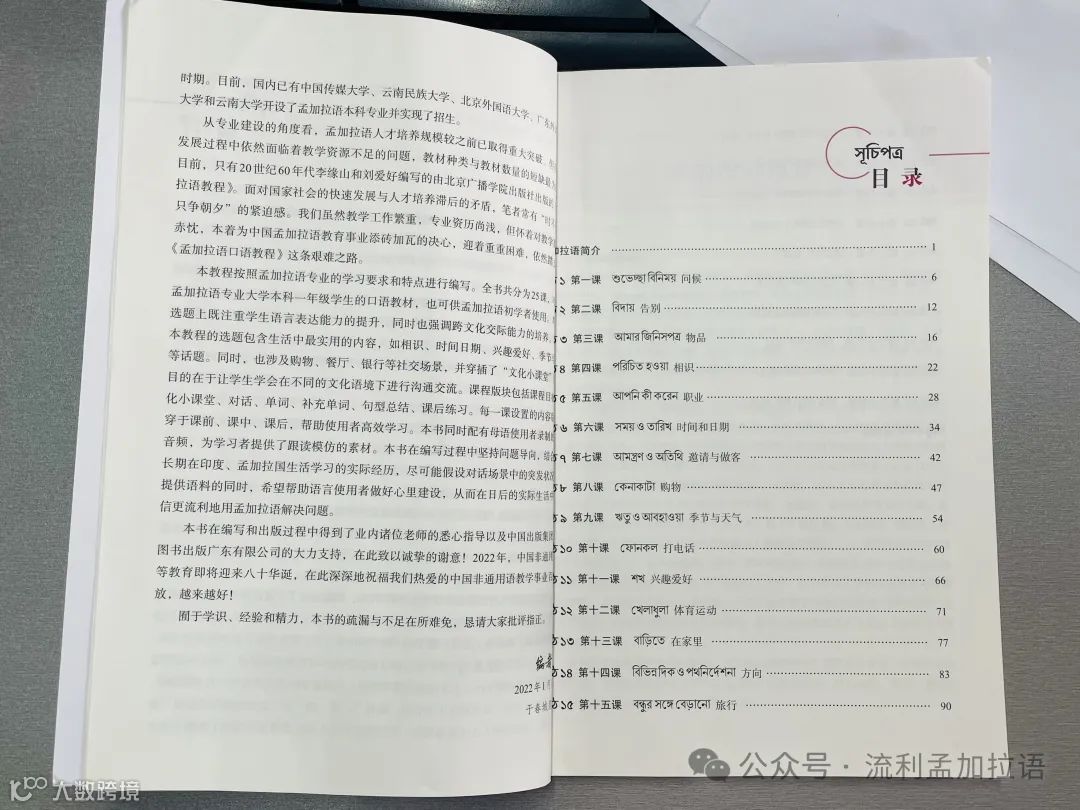 时期。目前，国内已有中国传媒大学、云南民族大学、北京外国语大学、广东外
大学和云南大学开设了孟加拉语本科专业并实现了招生。
从专业建设的角度看，孟加拉语人才培养规模较之前已取得重大突破
发展过程中依然面临着教学资源不足的问题，教材种类与教材数量的短缺
目前，只有20世纪60年代李缘山和刘爱好编写的由北京广播学院出版社出版的
拉语教程》。面对国家社会的快速发展与人才培养滞后的矛盾，笔者常有“时
只争朝夕”的紧迫感。我们虽然教学工作繁重，专业资历尚浅，但怀着对教学
赤忱，本着为中国孟加拉语教育事业添砖加瓦的决心，迎着重重困难，依然
《孟加拉语口语教程》这条艰难之路。
本教程按照孟加拉语专业的学习要求和特点进行编写。全书共分为25课，
孟加拉语专业大学本科一年级学生的口语教材，也可供孟加拉语初学者使用。
选题上既注重学生语言表达能力的提升，同时也强调跨文化交际能力的培养。
本教程的选题包含生活中最实用的内容，如相识、时间日期、兴趣爱好、季节
等话题。同时，也涉及购物、餐厅、银行等社交场景，并穿插了“文化小课堂”
目的在于让学生学会在不同的文化语境下进行沟通交流。课程版块包括课程目
化小课堂、对话、单词、补充单词、句型总结、课后练习。每一课设置的内容
穿于课前、课中、课后，帮助使用者高效学习。本书同时配有母语使用者录制
音频，为学习者提供了跟读模仿的素材。本书在编写过程中坚持问题导向，结
长期在印度、孟加拉国生活学习的实际经历，尽可能假设对话场景中的突发状
提供语料的同时，希望帮助语言使用者做好心里建设，从而在日后的实际生活中
信更流利地用孟加拉语解决问题。
本书在编写和出版过程中得到了业内诸位老师的悉心指导以及中国出版集团
图书出版广东有限公司的大力支持，在此致以诚挚的谢意！2022年，中国非通用
等教育即将迎来八十华诞，在此深深地祝福我们热爱的中国非通用语教学事业百
放，越来越好！
囿于学识、经验和精力，本书的疏漏与不足在所难免，恳请大家批评指正。
编者
2022年1月
于春城
সূচিপত্র
目录
加拉语简介 1
১ 第一课 শুভেচ্ছা বিনিময় 问候 6
২ 第二课 বিদায় 告别 12
৩ 第三课 আমার জিনিসপত্র 物品 16
৪ 第四课 পরিচিত হওয়া 相识 22
৫ 第五课 আপনি কী করেন 职业 28
৬ 第六课 সময় ও তারিখ 时间和日期 34
৭ 第七课 আমন্ত্রণ ও অতিথি 邀请与做客 42
৮ 第八课 কেনাকাটা 购物 47
৯ 第九课 ঋতু ও আবহাওয়া 季节与天气 54
১০ 第十课 ফোনকল 打电话 60
১১ 第十一课 শখ 兴趣爱好 66
১২ 第十二课 খেলাধুলা 体育运动 71
১৩ 第十三课 বাড়িতে 在家里 77
১৪ 第十四课 বিভিন্ন দিক ও পথনির্দেশনা 方向 83
১৫ 第十五课 বন্ধুর সঙ্গে বেড়ানো 旅行 90
公众号·流利孟加拉语
大数跨境